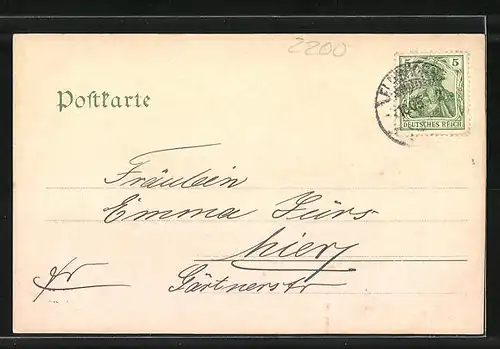 2200
5 5
DEUTSCHES REICH
Postkarte
Fräulein
Emma Fürs
hier
Gärtnerstr